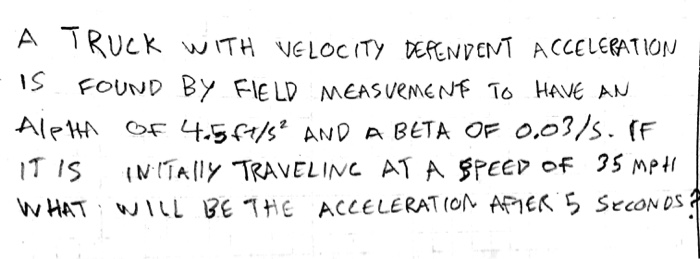 A TRUCK WITH VELOCITY DEPENDENT ACCELERATION
IS FOUND BY FIELD MEASURMENT TO HAVE AN
AlpHA OF 4.5 ft/s² AND A BETA OF 0.03/s. IF
IT IS INITALLY TRAVELING AT A SPEED OF 35 MPH
WHAT WILL BE THE ACCELERATION AFTER 5 SECONDS?